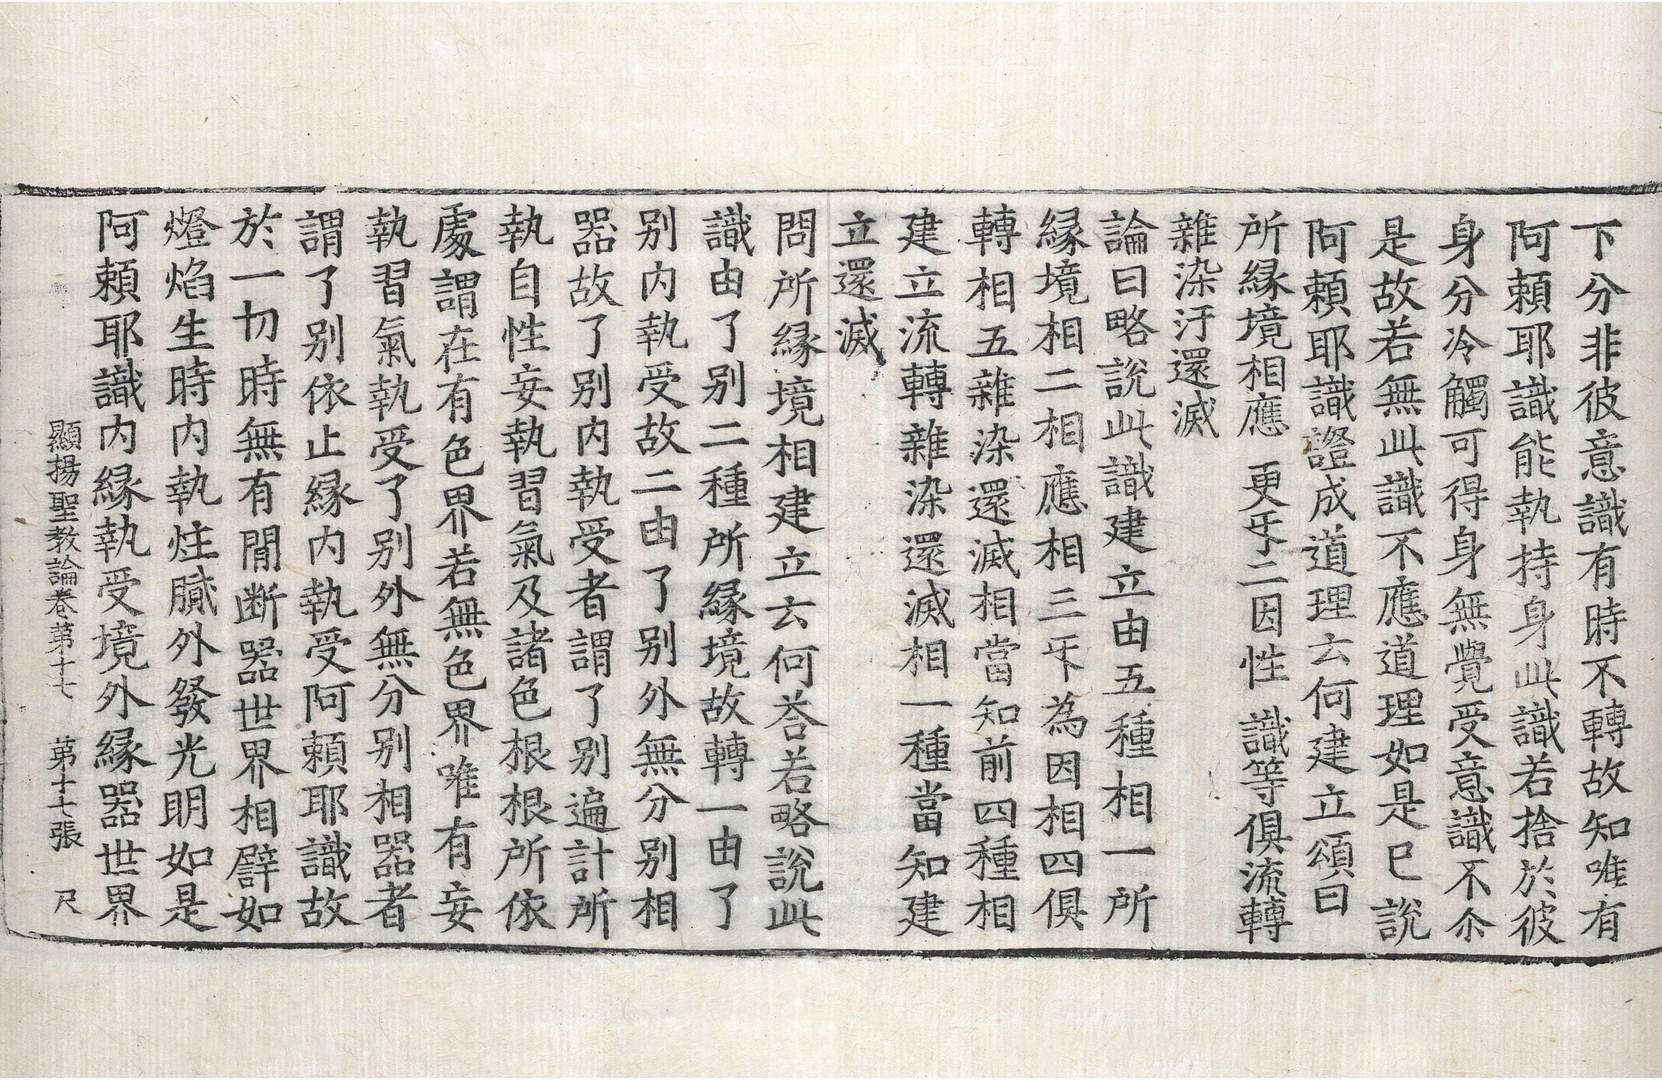 下分非彼意識有時不轉故知唯有
阿賴耶識能執持身此識若捨於彼
身分冷觸可得身無覺受意識不尒
是故若無此識不應道理如是已說
阿賴耶識證成道理云何建立頌曰
所緣境相應 更㸦二因性 識等俱流轉
雜染汙還滅
論曰略說此識建立由五種相一所
緣境相二相應相三㸦為因相四俱
轉相五雜染還滅相當知前四種相
建立流轉雜染還滅相一種當知建
立還滅
問所緣境相建立云何荅若略說此
識由了别二種所緣境故轉一由了
别內執受故二由了别外無分别相
器故了别內執受者謂了别遍計所
執自性妄執習氣及諸色根根所依
處謂在有色界若無色界唯有妄
執習氣執受了别外無分别相器者
謂了别依止緣內執受阿賴耶識故
於一切時無有閒斷器世界相譬如
燈焰生時內執炷膩外發光明如是
阿賴耶識內緣執受境外緣器世界
顯揚聖教論卷第十七 第十七張 尺